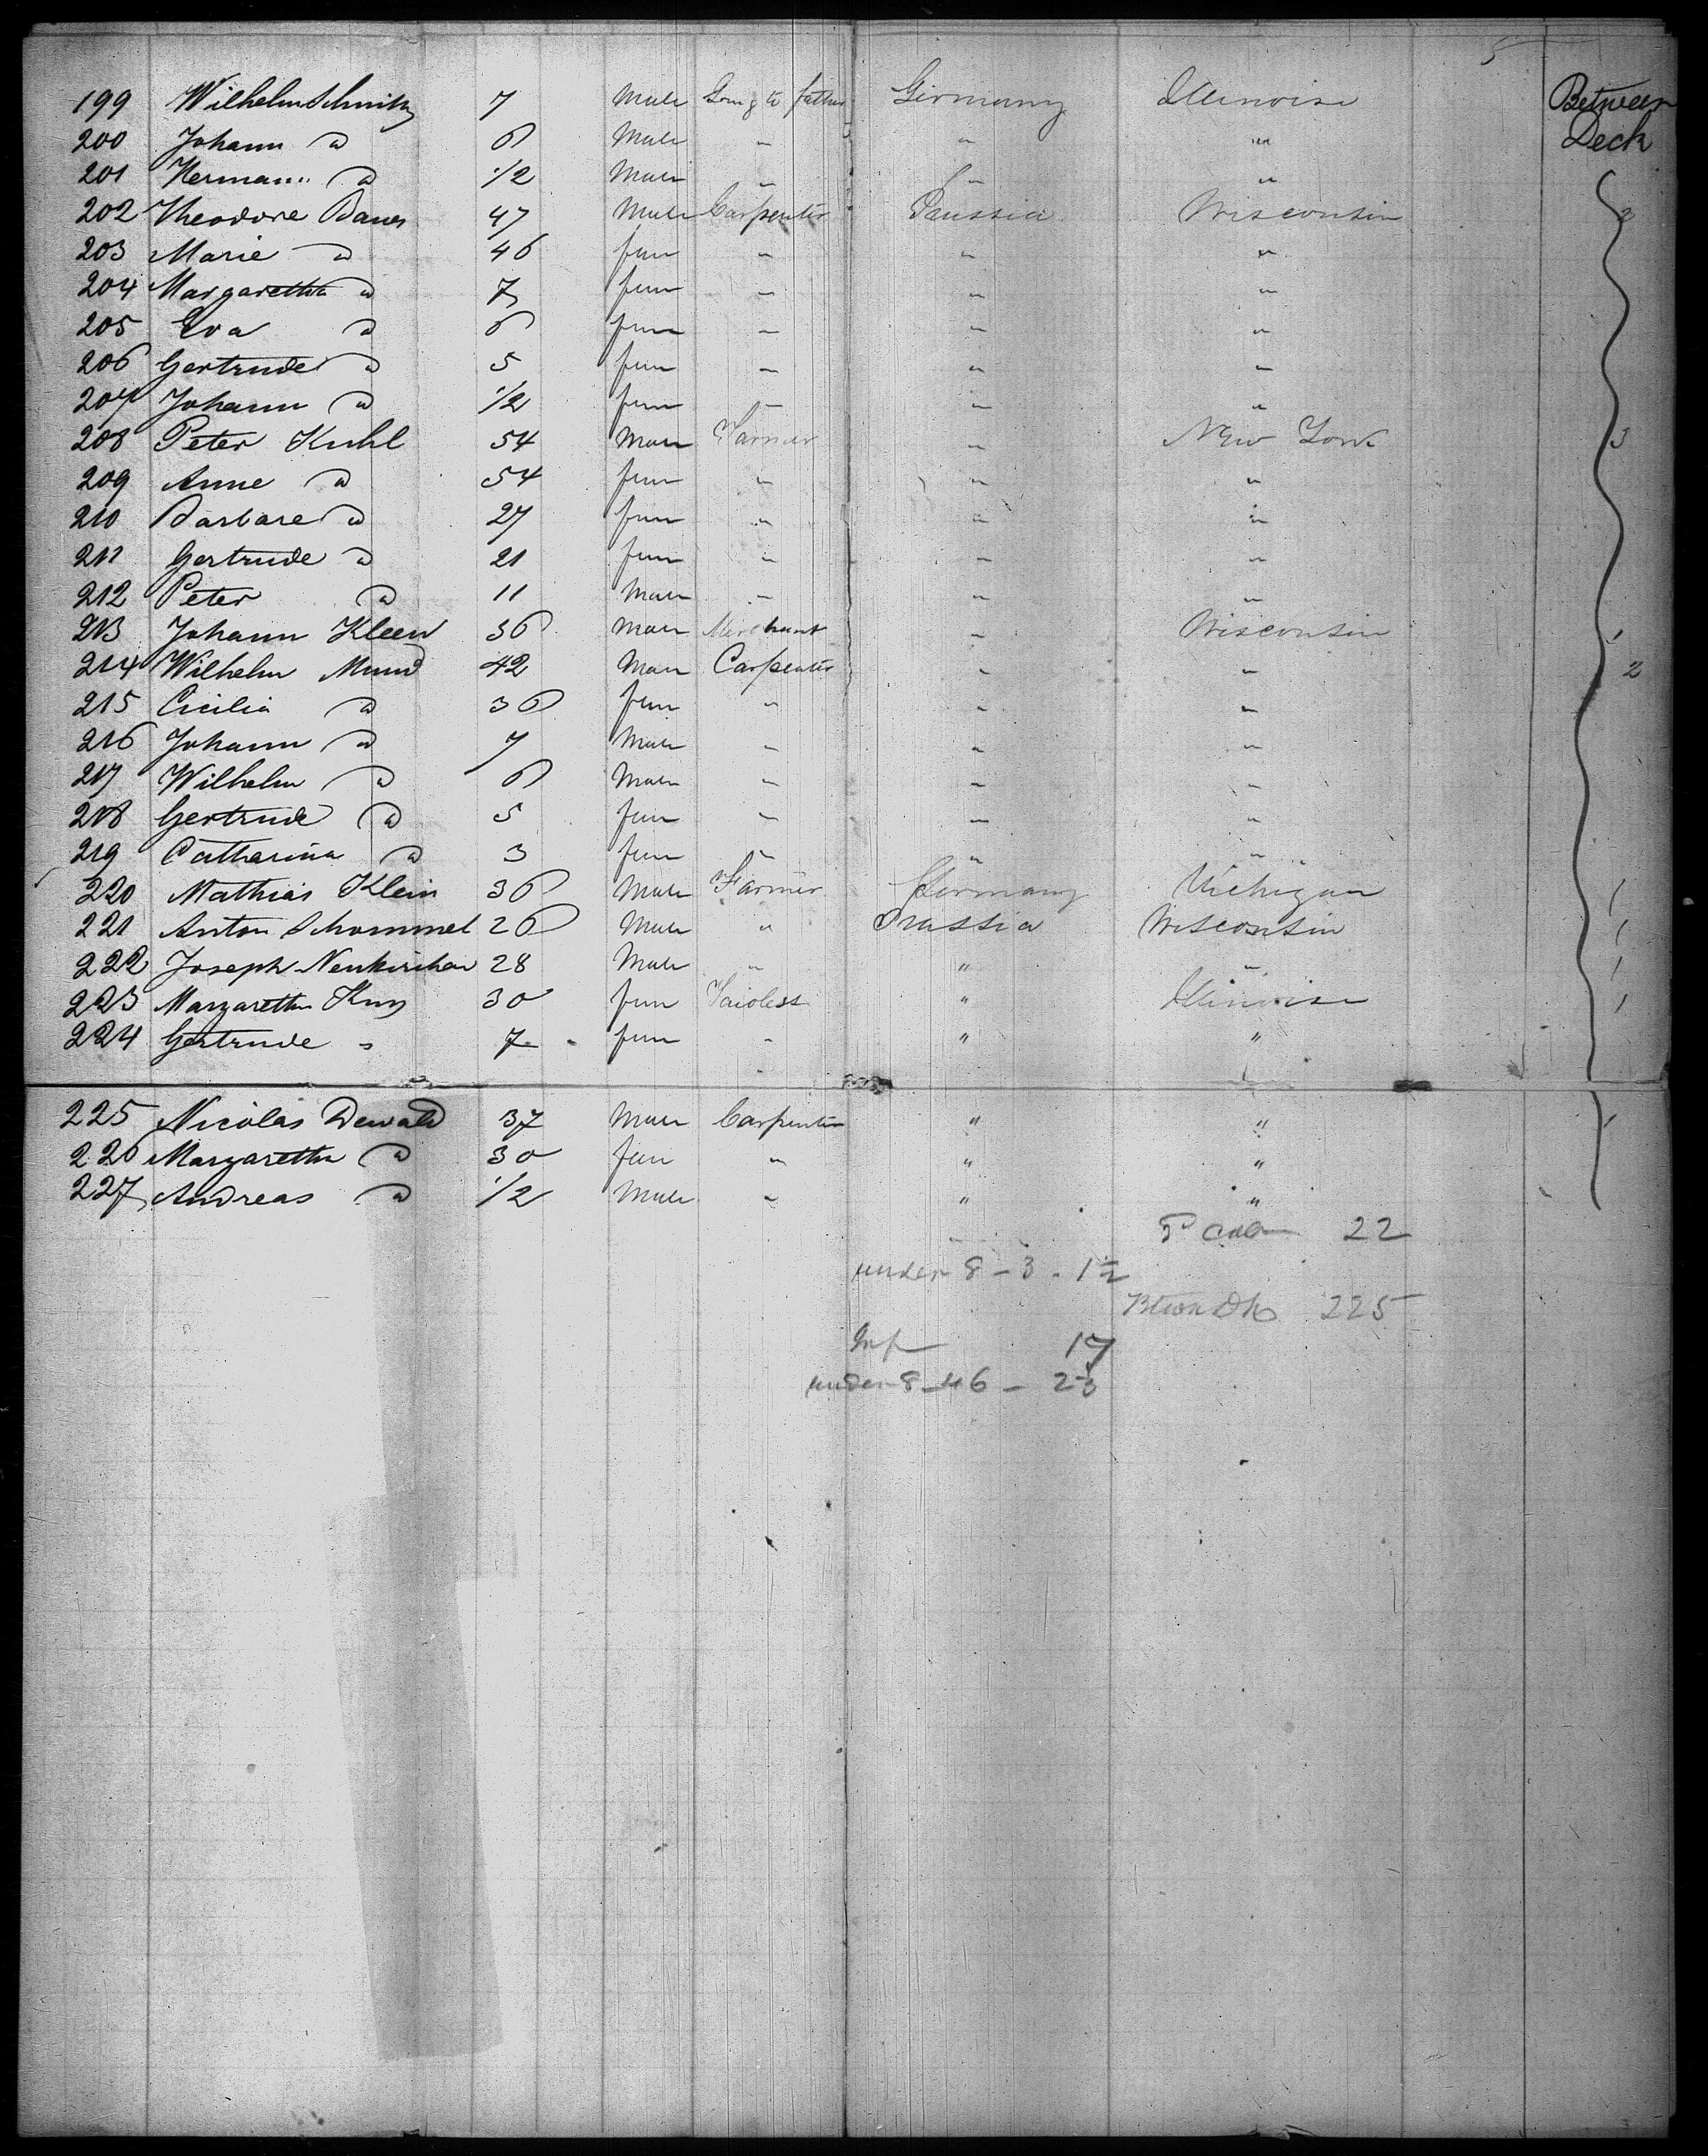 5
199 Wilhelm Schmitz 7 Male Going to father Germany Illinoise Between
200 Johann do 6 Male " " " Deck
201 Hermann do 1/2 Male " " "
202 Theodore Bauer 47 Male Carpenter Prussia Wisconsin 2
203 Marie do 46 fem " " "
204 Margaretha do 7 fem " " "
205 Eva do 6 fem " " "
206 Gertrude do 5 fem " " "
207 Johann do 1/2 fem " " "
208 Peter Kuhl 54 Male Farmer " New York 3
209 Anne do 54 fem " " "
210 Barbare do 27 fem " " "
211 Gertrude do 21 fem " " "
212 Peter do 11 Male " " "
213 Johann Kleen 36 Male Merchant " Wisconsin 1
214 Wilhelm Mund 42 Male Carpenter " " 2
215 Cicilia do 36 fem " " "
216 Johann do 7 Male " " "
217 Wilhelm do 6 Male " " "
218 Gertrude do 5 fem " " "
219 Catharina do 3 fem " " "
220 Mathias Klein 36 Male Farmer Germany Michigan 1
221 Anton Schommel 26 Male " Prussia Wisconsin 1
222 Joseph Neukirchen 28 Male " " " 1
223 Margaretha 30 fem " Illinoise 1
224 Gertrude " 7 fem " " "
225 Nicolas Dewald 37 Male Carpenter " "
226 Margaretha do 30 fem " " "
227 Andreas do 1/2 Male " " "
22
under 8 - 3 - 1 1/2
Btwn Dk 225
Inf 17
under 8 - 46 - 23